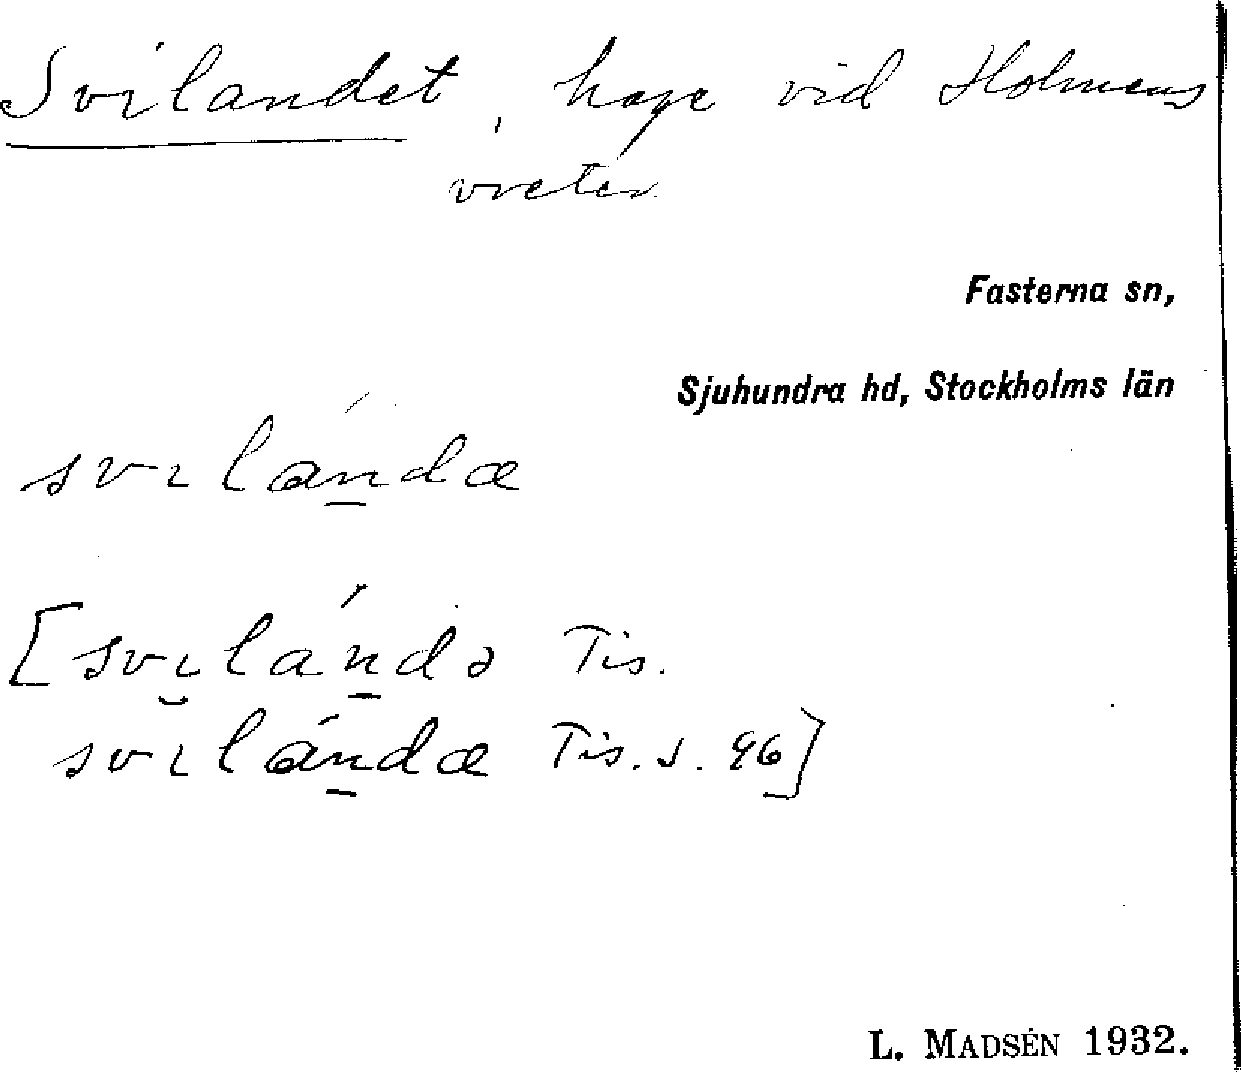 Svilandet, hage vid Holmens
vreten
Fasterna sn,
Sjuhundra hd, Stockholms län
svɩlán̲dæ
[svɩ̮lán̲də Tis.
svɩlán̲dæ Tis. s. 96]
L. MADSÉN 1932.